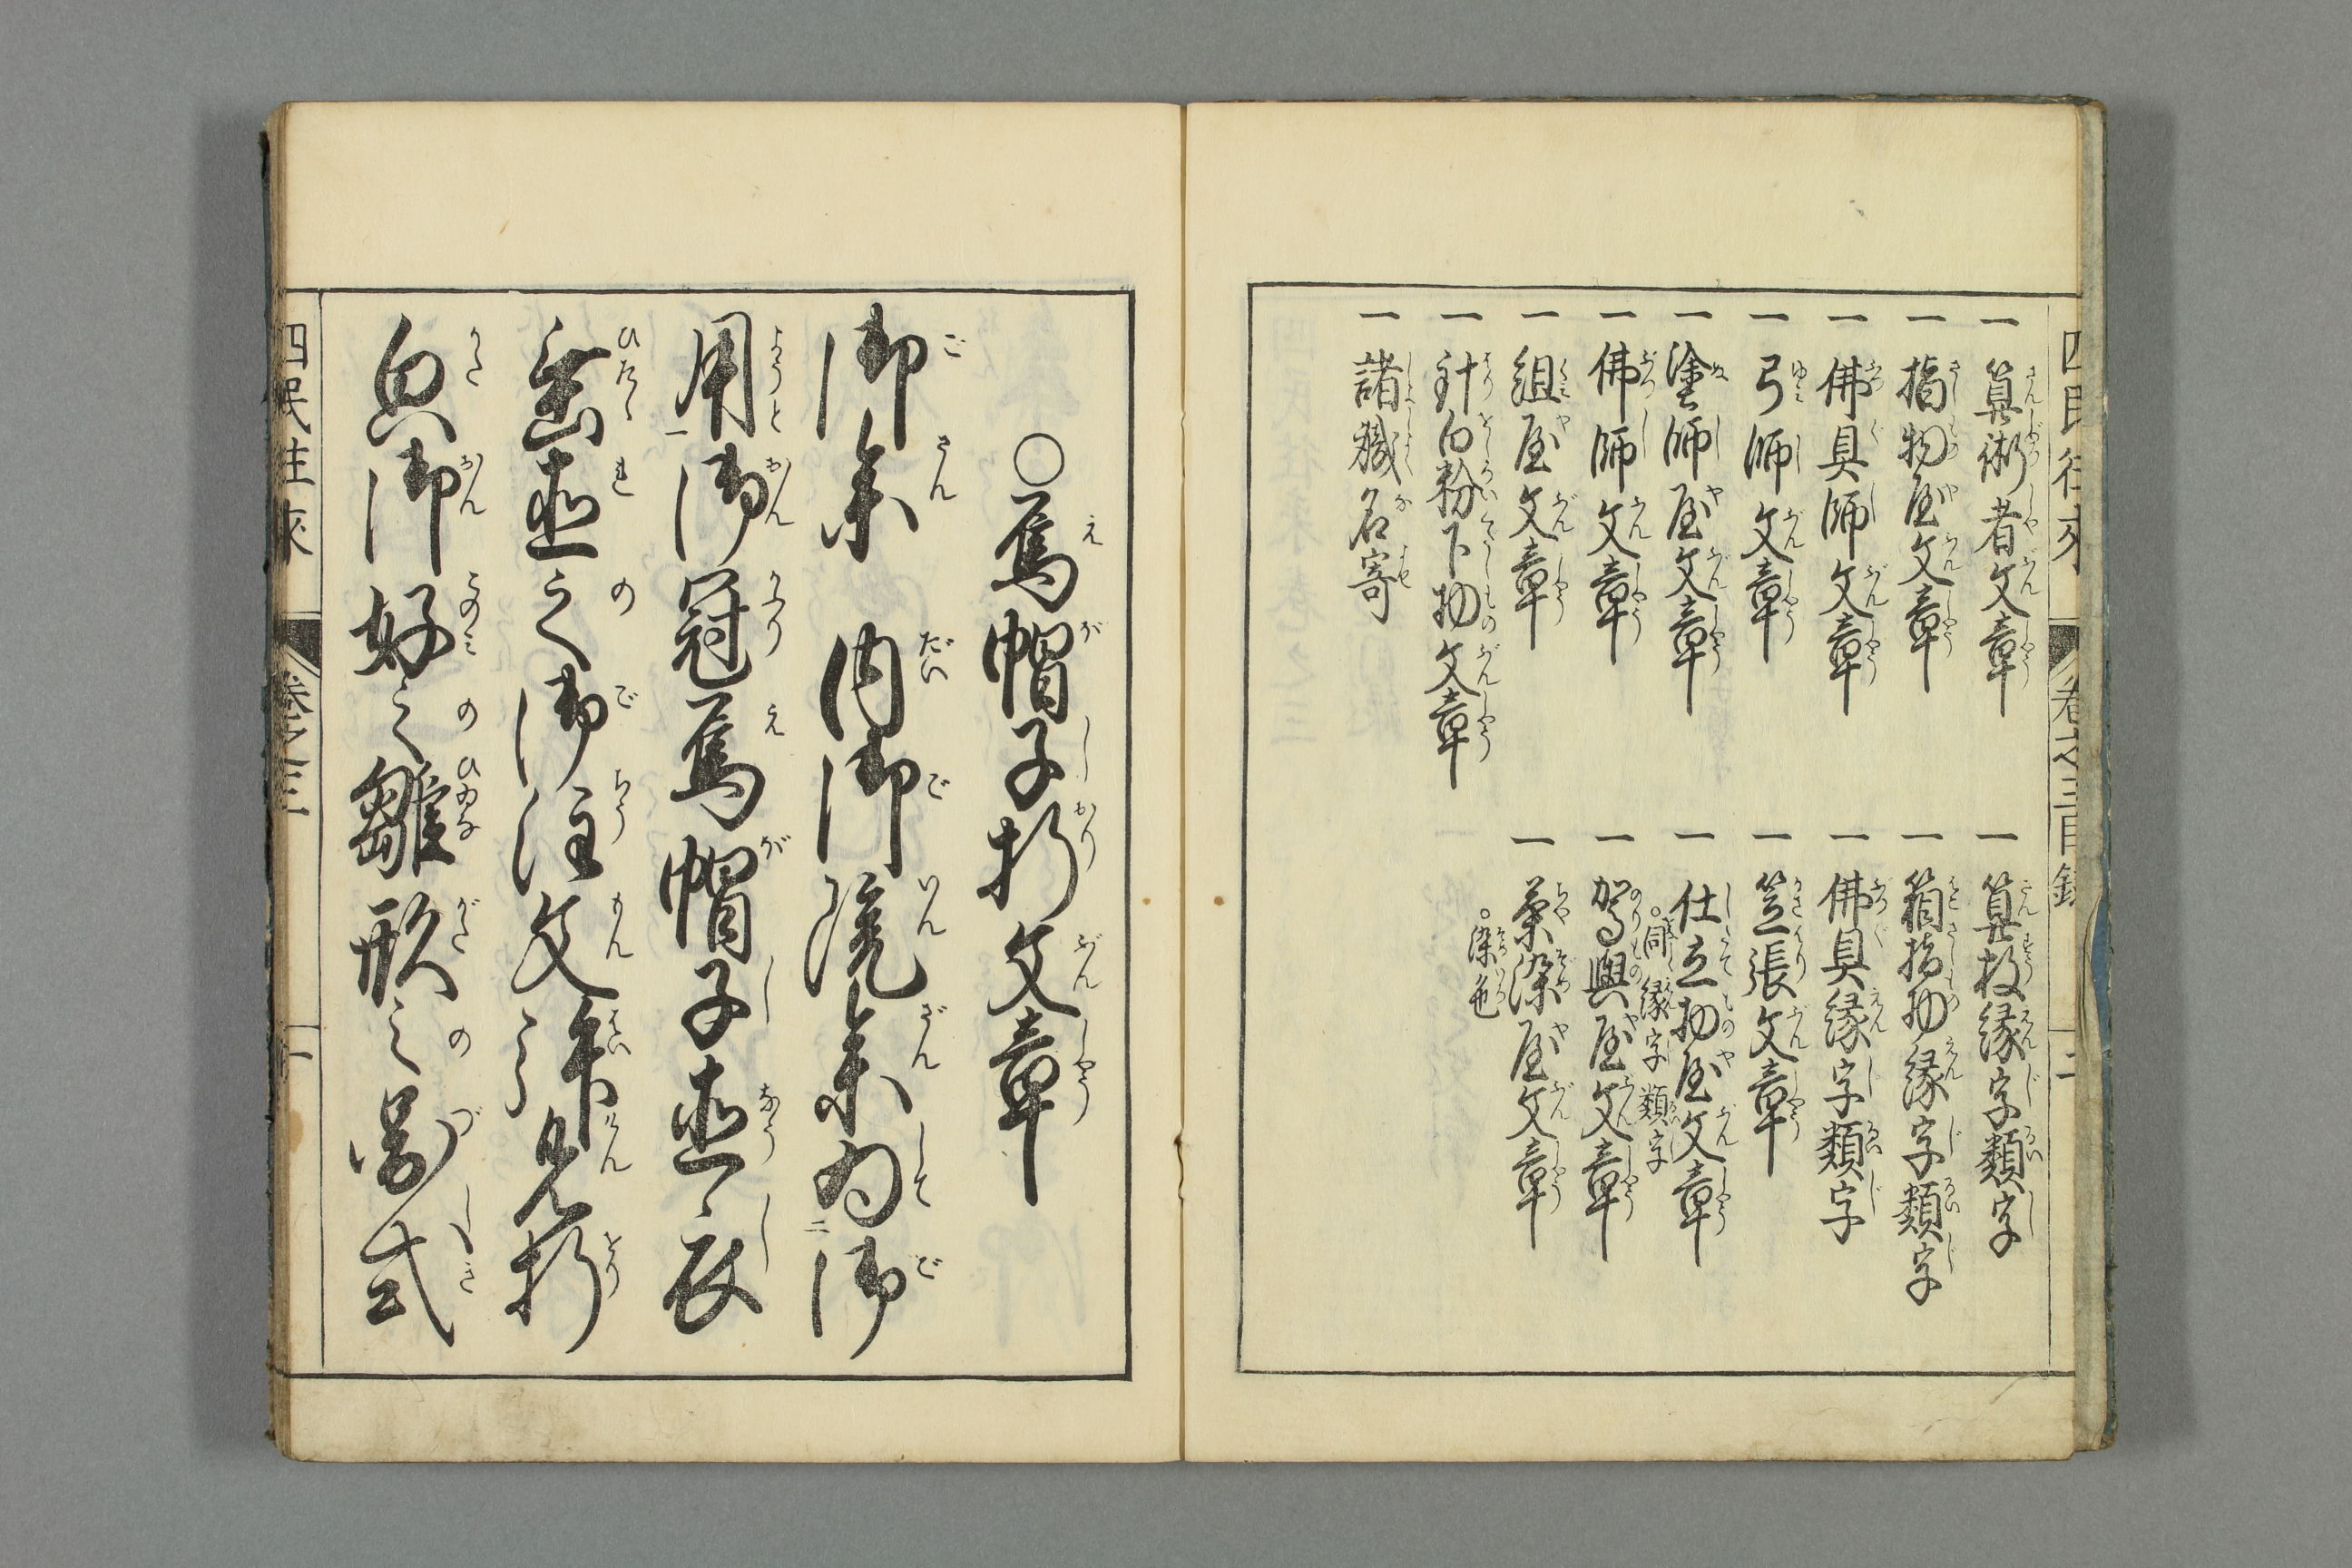 四民往來 卷之三目録 二
一 算術者文章
一 指物屋文章
一 佛具師文章
一 弓師文章
一 塗師屋文章
一 佛師文章
一 組屋文章
一 針白粉下物文章
一 諸職名寄
一 算枚縁字類字
一 箱指物縁字類字
一 佛具縁字類字
一 笠張文章
一 仕立物屋文章
○同縁字類字
一 駕輿屋文章
一 茶染屋文章
○染色
○烏帽子折文章
御参内御院参為御
用御冠烏帽子直衣
垂直之御注文拝見折
御好之雛形之図式
四民往來 卷之三 一